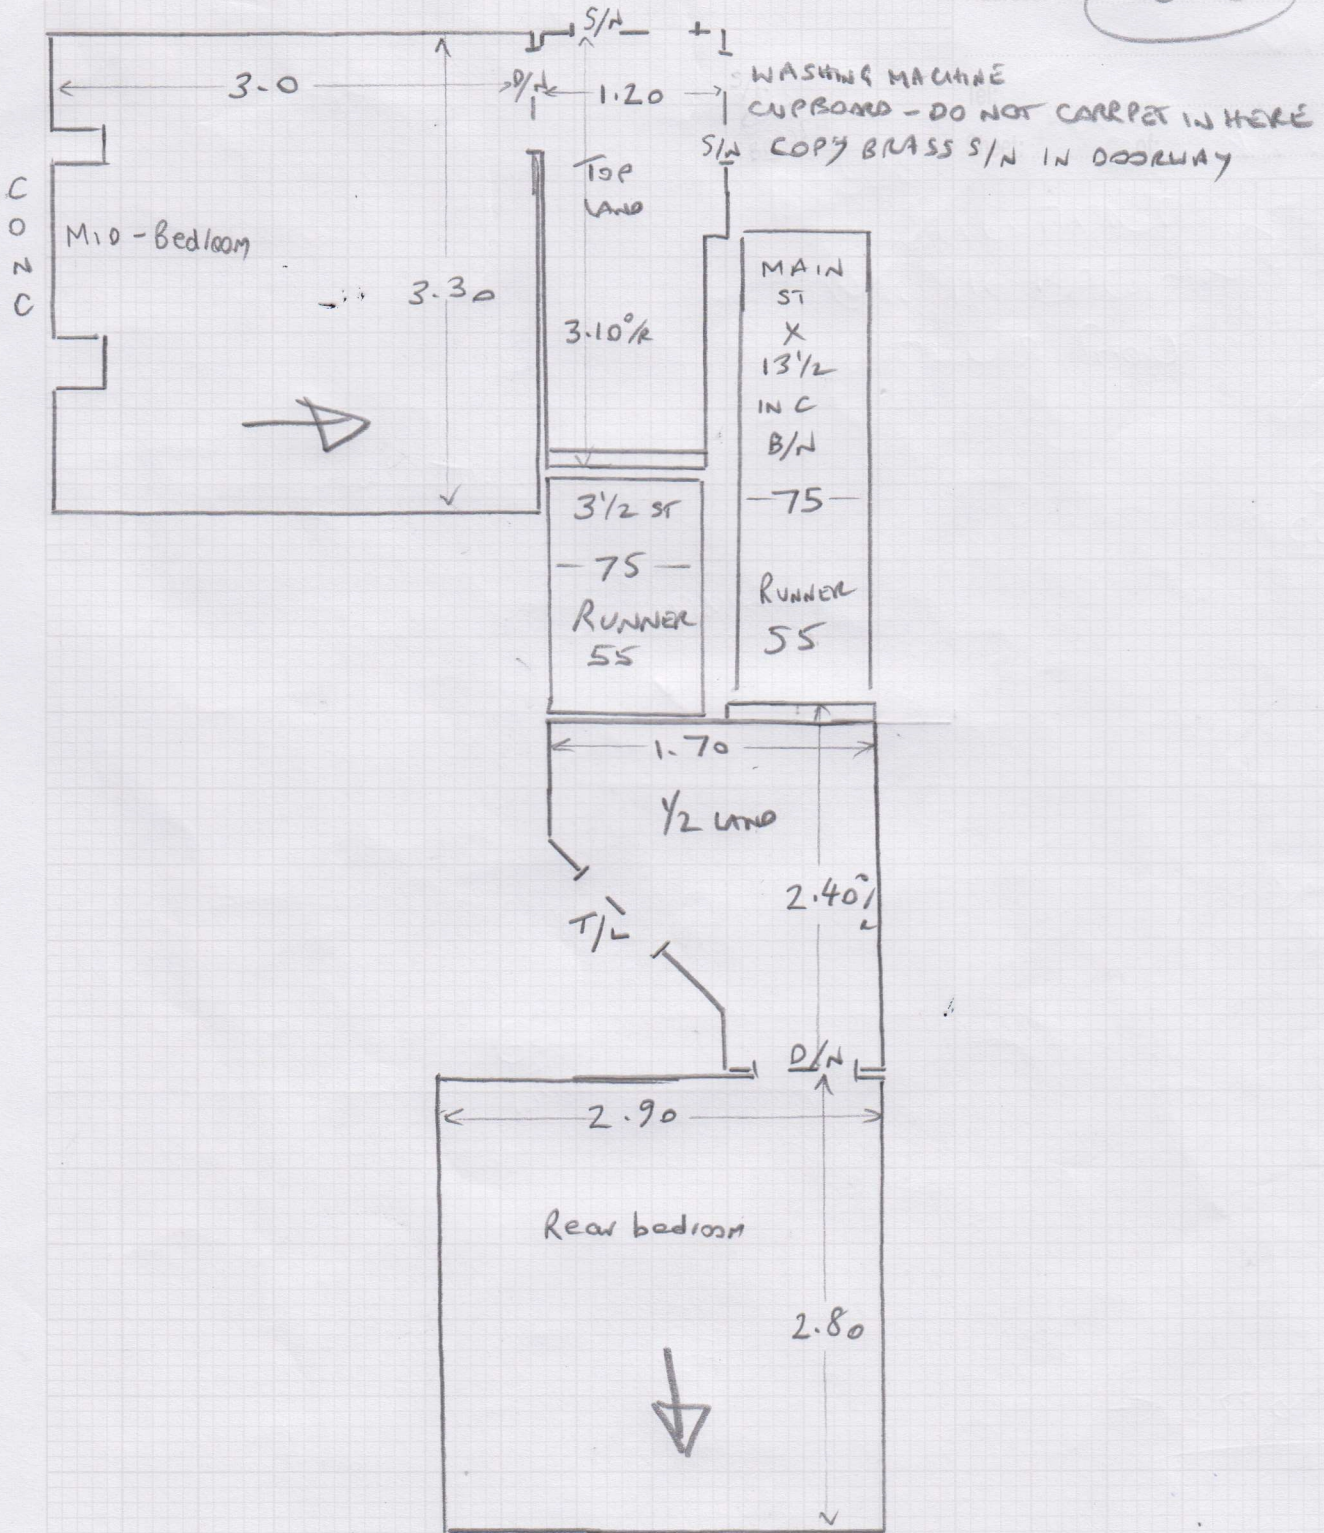 S/N
3.0
D/N
1.20
WASHING MACHINE
CUPBOARD - DO NOT CARRPET IN HERE
S/N COPY BRASS S/N IN DOORWAY
TOP
LAND
C
O
N
C
MID-Bedroom
3.30
3.10 O/R
MAIN
ST
X
13 1/2
INC
B/N
75
RUNNER
55
3 1/2 ST
75
RUNNER
55
1.70
1/2 LAND
2.40 O/R
T/L
D/N
2.90
Rear bedroom
2.80